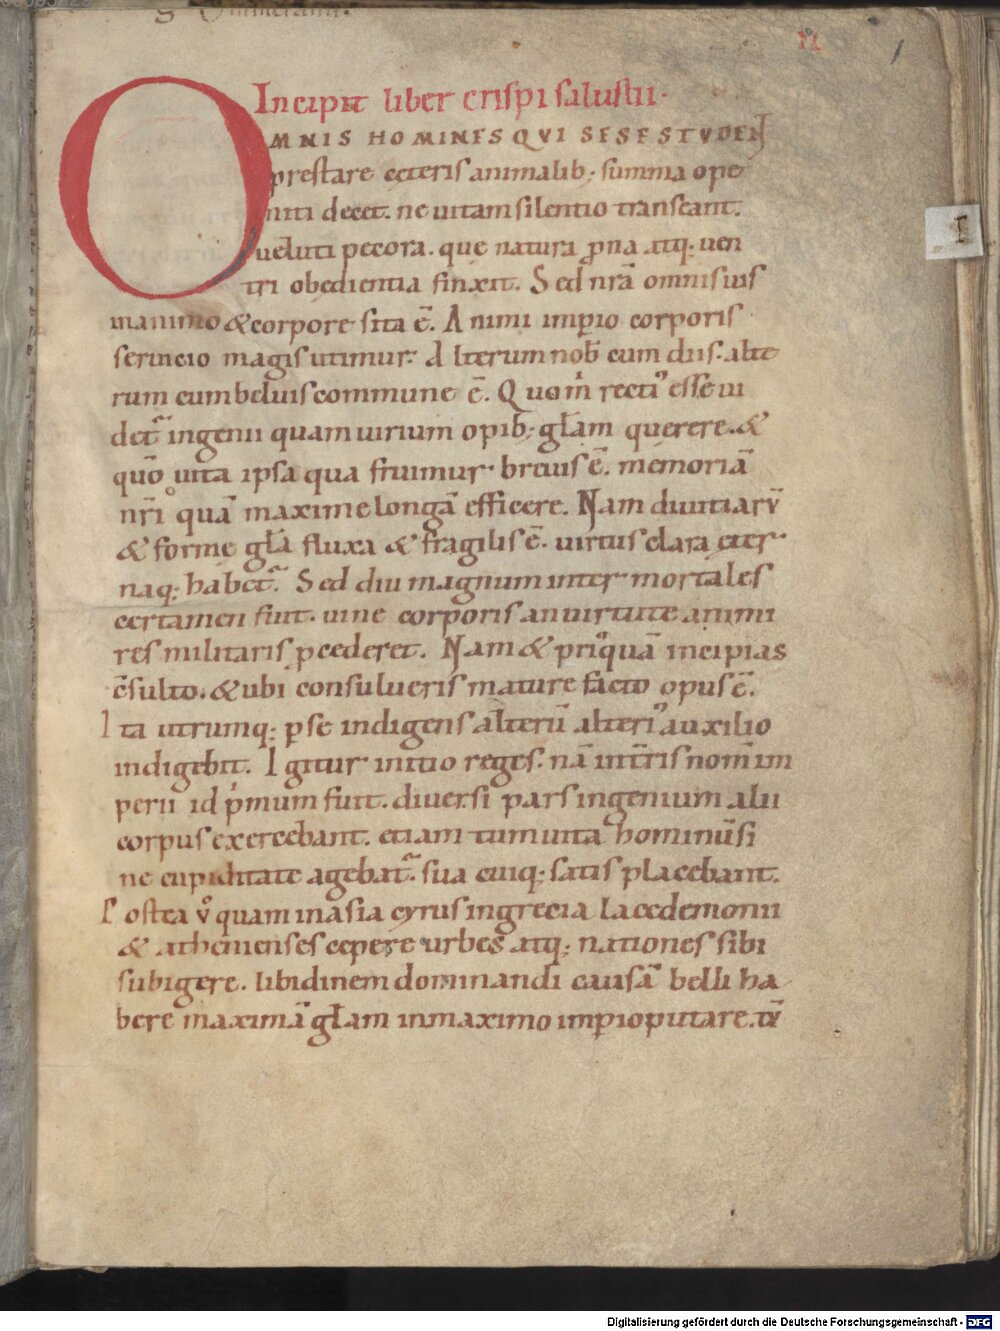 Incipit liber crispi salustii.
OMNIS HOMINES QVI SESE STVDENT
prestare ceteris animalib; summa ope
niti decet. ne uitam silentio transeant.
ueluti pecora. que natura ꝓna atq; uen
tri obedientia finxit. Sed nr̄a omnis uis
in animo & corpore sita ē. Animi imꝑio corporis
seruicio magis utimur. Alterum nob̄ cum diis. alte
rum cum beluis commune ē. Quom̄ recti᾽ esse ui
det᷑ ingenii quam uirium opib; gl̄am querere. &
quō uita ipsa qua fruimur. breuis ē. memoriā
nr̄i quā maxime longā efficere. Nam diuitiarū
& forme gl̄a fluxa & fragilis ē. uirtus clara eter
naq; habet᷑. Sed diu magnum inter mortales
certamen fuit. uine corporis an uirtute animi
res militaris ꝓcederet. Nam & priͦquā incipias
c̄sulto. & ubi consulueris mature facto opus ē.
Ita utrumq; ꝑ se indigens alterū alteri᾽ auxilio
indigebit. Igitur initio reges. nā int̄ris nom̄ im
perii id p̄mum fuit. diuersi pars ingenium alii
corpus exercebant. etiam tum uita hominū si
ne cupiditate agebat᷑. sua cuiq; satis placebant.
Postea v̊ quam in asia cyrus in grecia lacedemonii
& athenienses cepere urbes atq; nationes sibi
subigere. libidinem dominandi causā belli ha
bere maximā gl̄am in maximo imꝑio putare. tū
1
Digitalisierung gefördert durch die Deutsche Forschungsgemeinschaft - DFG